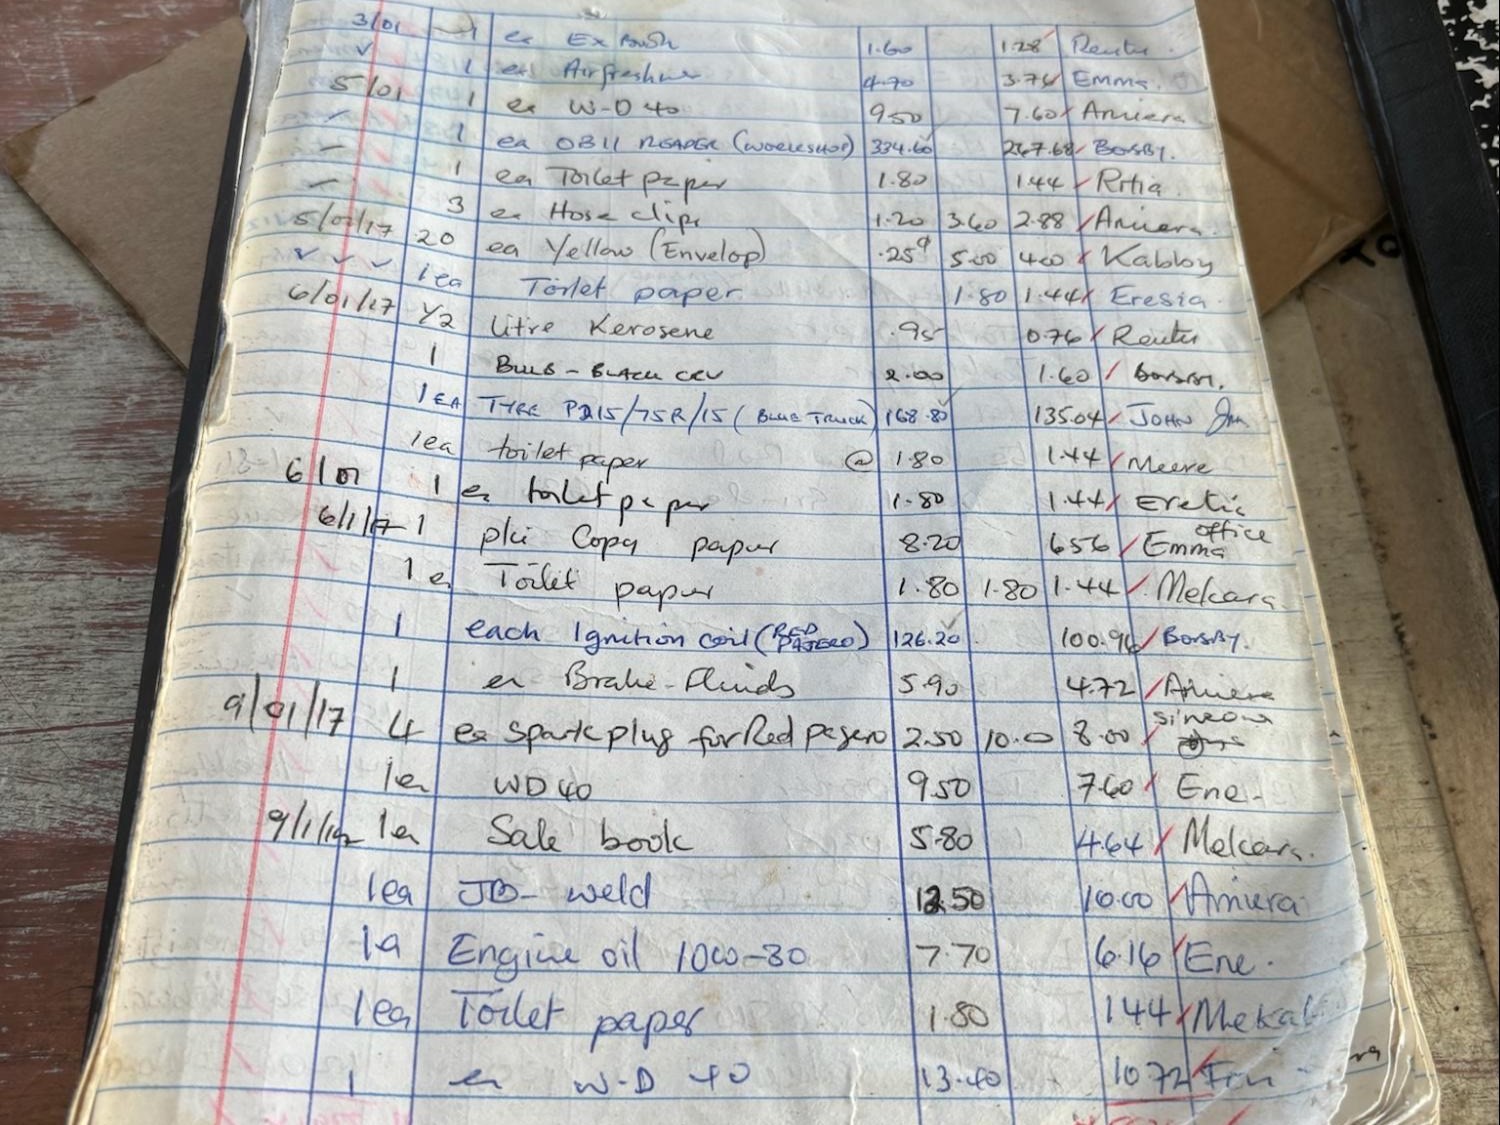 3/01 1 ea Ex Book 1.60 1.28 Reutu
✓ 1 ea Airfreshner 4.70 3.76 Emma
5/01 1 ea W-D 40 9.50 7.60 Amiera
1 ea OB11 READER (WORKSHOP) 334.60 267.68 BOBBY.
1 ea Toilet paper 1.80 1.44 Ritia
3 ea Hose clips 1.20 3.60 2.88 Amiera
5/01/17 20 ea Yellow (Envelop) .25 5.00 4.00 Kabboy
✓ ✓ ✓ 1ea Toilet paper 1.80 1.44 Eresia
6/01/17 1/2 litre Kerosene .95 0.76 Reutu
1 BULB - BLACK CRV 2.00 1.60
1 EA TYRE P215/75R/15 (BLUE TRUCK) 168.80 135.04 JOHN
1ea toilet paper @ 1.80 1.44 Meere
6/01 1 ea toilet paper 1.80 1.44 Eretic
6/1/17 1 pkt Copy paper 8.20 6.56 Emma office
1 ea Toilet paper 1.80 1.80 1.44 Mekara
1 each Ignition coil (RED PAJERO) 126.20 100.96 BOBBY.
1 ea Brake-Fluids 5.90 4.72 Amiera
9/01/17 4 ea Spark plug for Red pajero 2.50 10.00 8.00 Simeona
1ea WD40 9.50 7.60 Ene.
9/1/17 1ea Sale book 5.80 4.64 Mekara.
1ea JB-weld 12.50 10.00 Amiera
1ea Engine oil 10W-30 7.70 6.16 Ene.
1ea Toilet paper 1.80 1.44 Meka
1 ea W-D 40 13.40 10.72